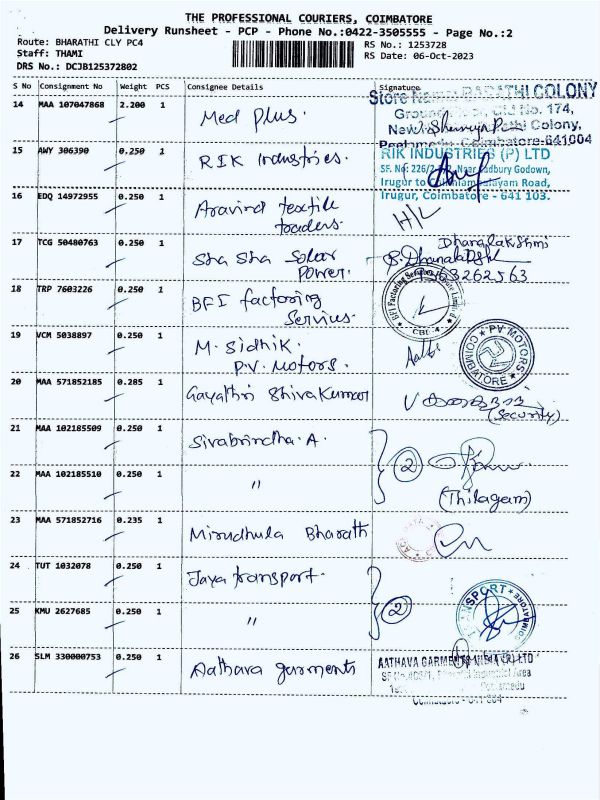 THE PROFESSIONAL COURIERS, COIMBATORE
Delivery Runsheet - PCP - Phone No.:0422-3505555 - Page No.:2
Route: BHARATHI CLY PC4
Staff: THAMI
DRS No.: DCJB125372802
RS No.: 1253728
RS Date: 06-Oct-2023
S No Consignment No Weight PCS Consignee Details Signature
14 MAA 107047868 2.200 1 Med plus.
Colony,
Coimbatore-641004
15 AWY 306390 0.250 1 RIK Industries.
RIK INDUSTRIES (P) LTD
Irugur, Coimbatore - 641 103.
16 EDQ 14972955 0.250 1 Aravind textile
traders. H/L
17 TCG 50480763 0.250 1 Sha Sha Solar
Power.
Dhanalakshmi
18 TRP 7603226 0.250 1 BFI factoring
Services.
19 VCM 5038897 0.250 1 M. Sidhik.
P.V. Motors.
PV MOTORS
COIMBATORE
20 MAA 571852185 0.285 1 Gayathri Shivakumar
(Security)
21 MAA 102185509 0.250 1 Sivabrindha. A.
22 MAA 102185510 0.250 1 "
2
(Thilagam)
23 MAA 571852716 0.235 1 Mirudhula Bharath
24 TUT 1032078 0.250 1 Jaya transport.
25 KMU 2627685 0.250 1 "
2
26 SLM 330000753 0.250 1 Aathava garments
AATHAVA GARMENTS INDIA (P) LTD